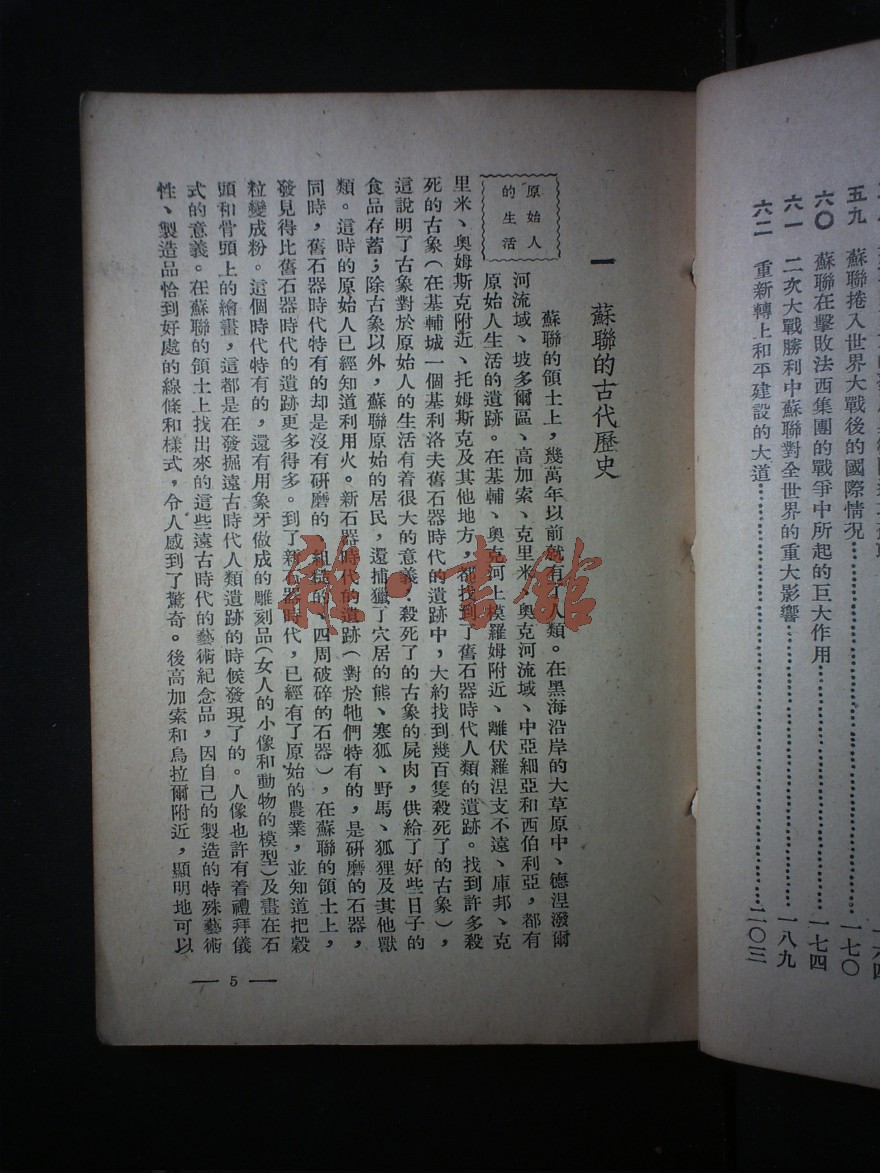 五九　蘇聯捲入世界大戰後的國際情況……一七〇
六〇　蘇聯在擊敗法西集團的戰爭中所起的巨大作用……一七四
六一　二次大戰勝利中蘇聯對全世界的重大影響……一八九
六二　重新轉上和平建設的大道……二〇三
一　蘇聯的古代歷史
原始人
的生活
蘇聯的領土上，幾萬年以前就有了人類。在黑海沿岸的大草原中、德涅潑爾
河流域、坡多爾區、高加索、克里米、奧克河流域、中亞細亞和西伯利亞，都有
原始人生活的遺跡。在基輔、奧克河上模羅姆附近、離伏羅涅支不遠、庫邦、克
里米、奧姆斯克附近、托姆斯克及其他地方，都找到了舊石器時代人類的遺跡。找到許多殺
死的古象（在基輔城一個基利洛夫舊石器時代的遺跡中，大約找到幾百隻殺死了的古象），
這說明了古象對於原始人的生活有着很大的意義：殺死了的古象的屍肉，供給了好些日子的
食品存蓄；除古象以外，蘇聯原始的居民，還捕獵了穴居的熊、寒狐、野馬、狐狸及其他獸
類。這時的原始人已經知道利用火。新石器時代的遺跡（對於牠們特有的，是研磨的石器，
同時，舊石器時代特有的却是沒有研磨的、粗糙的、四周破碎的石器），在蘇聯的領士上，
發見得比舊石器時代的遺跡更多得多。到了新石器時代，已經有了原始的農業，並知道把穀
粒變成粉。這個時代特有的，還有用象牙做成的雕刻品（女人的小像和動物的模型）及畫在石
頭和骨頭上的繪畫，這都是在發掘遠古時代人類遺跡的時候發現了的。人像也許有着禮拜儀
式的意義。在蘇聯的領土上找出來的這些遠古時代的藝術紀念品，因自己的製造的特殊藝術
性、製造品恰到好處的線條和樣式，令人感到了驚奇。後高加索和烏拉爾附近，顯明地可以
— 5 —
雜·書館